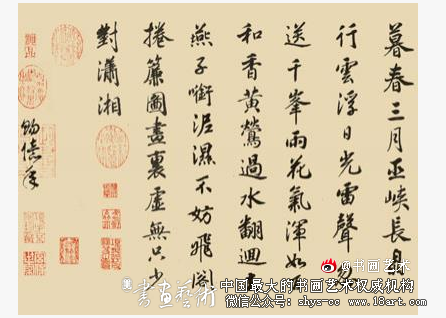 暮春三月巫峽長
行雲浮日光雷聲忽
送千峯雨花氣渾如百
和香黃鶯過水翻迴去
燕子銜泥濕不妨飛閣
捲簾圖畫裏虛無只少
對瀟湘
@书画艺术
書畫藝術
中国最大的书画艺术权威机构
微信公众号: shys-cc www.18art.com